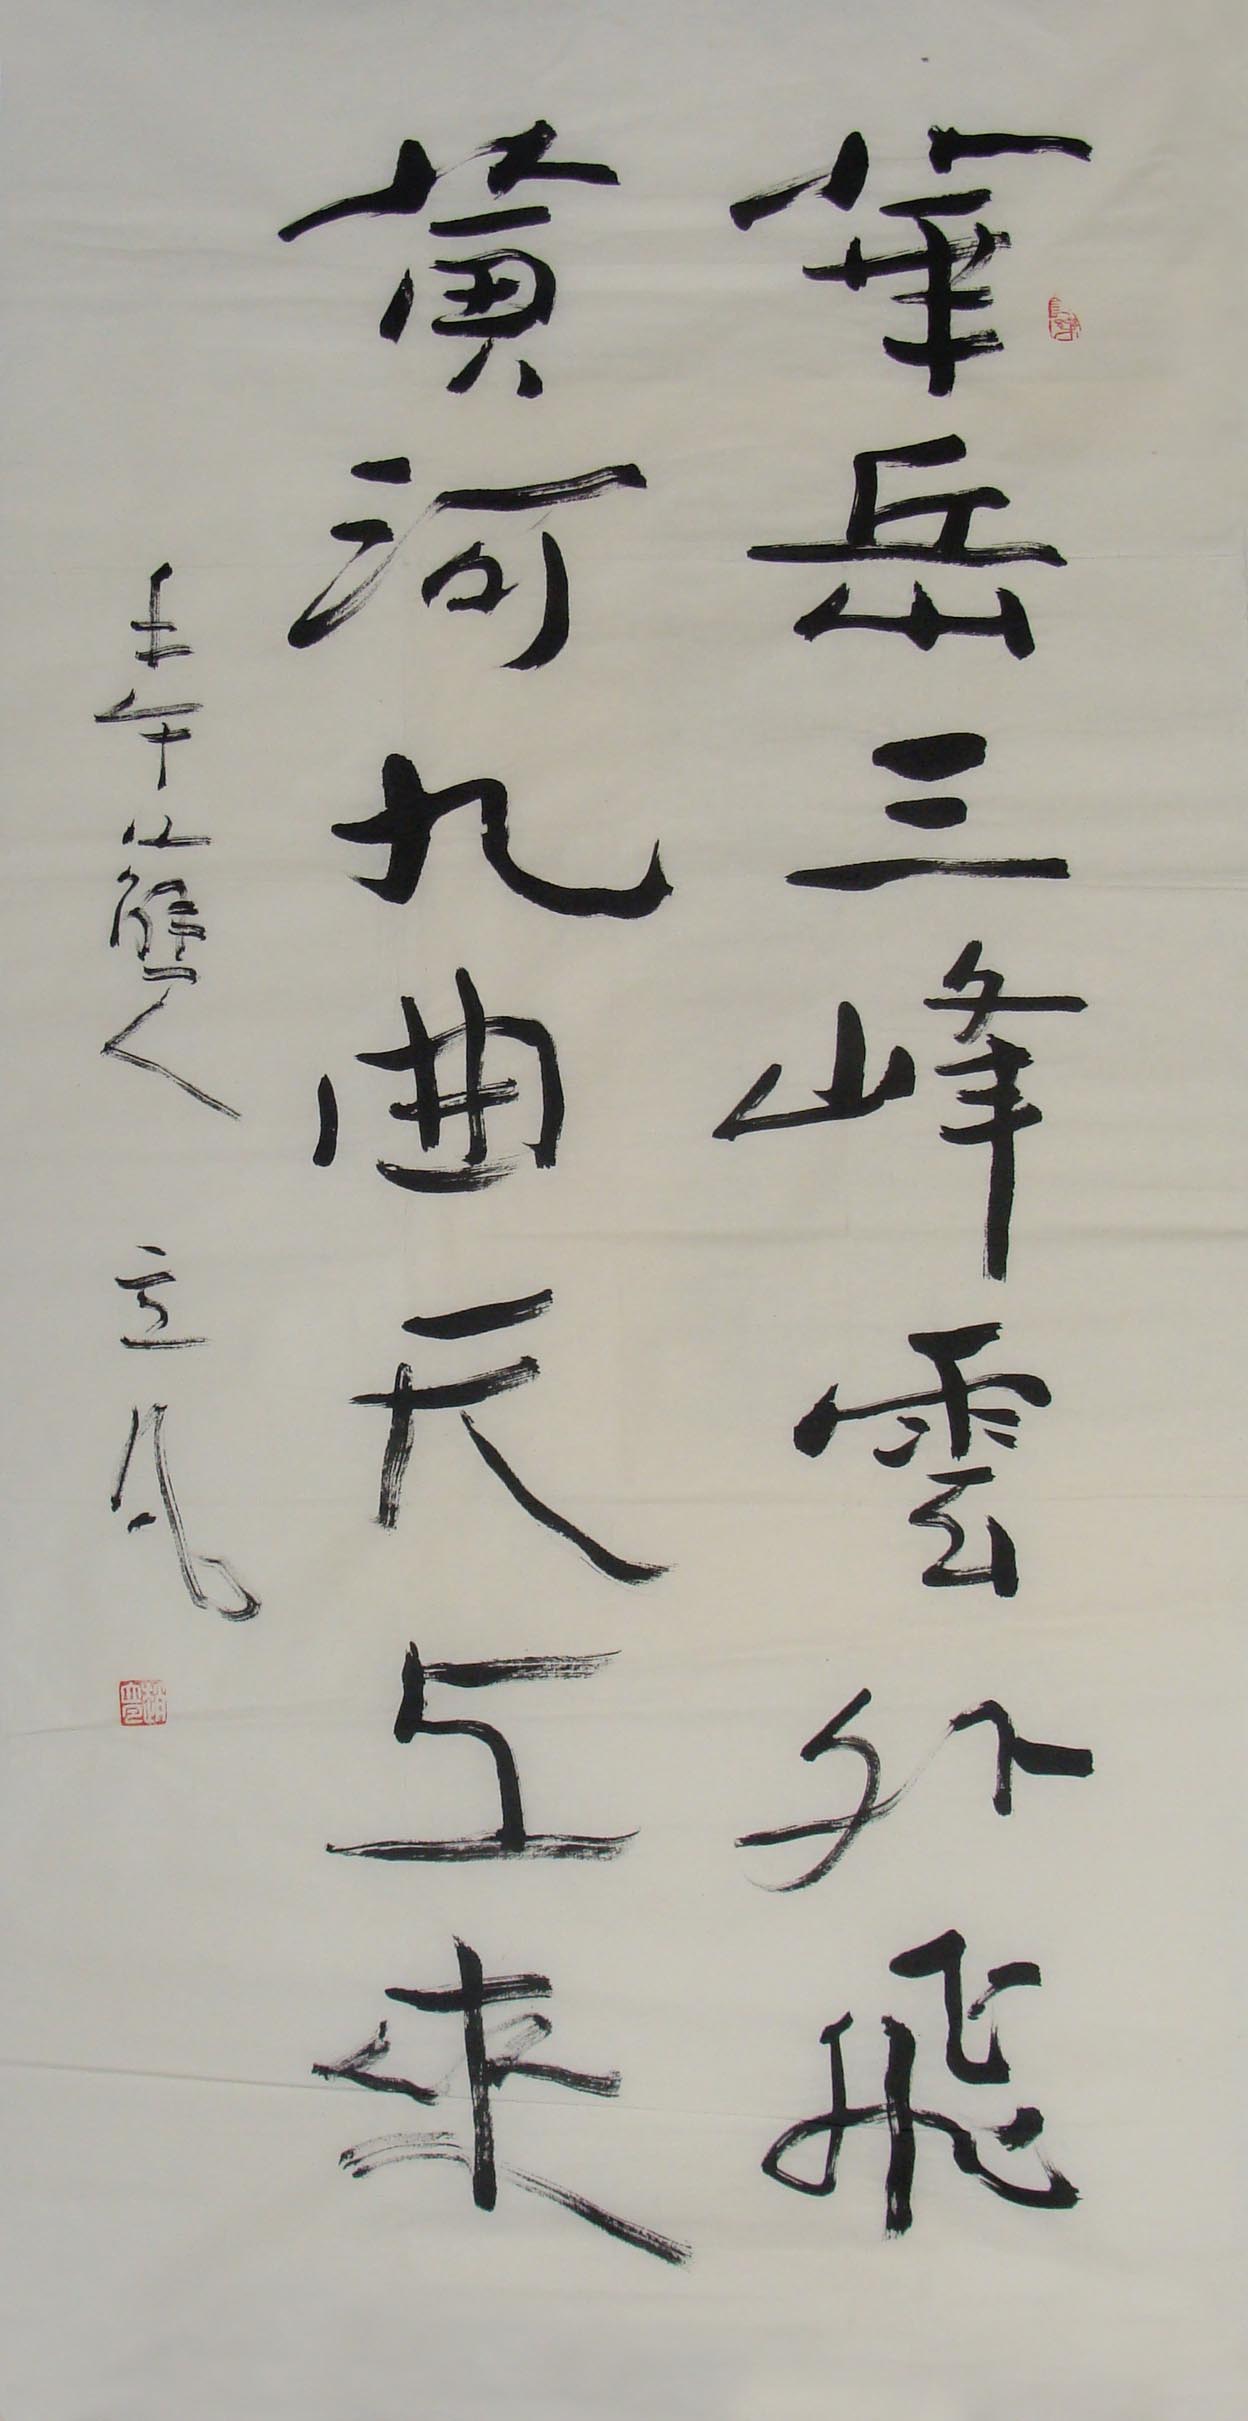 華岳三峰雲外飛
黃河九曲天上來
壬午 立